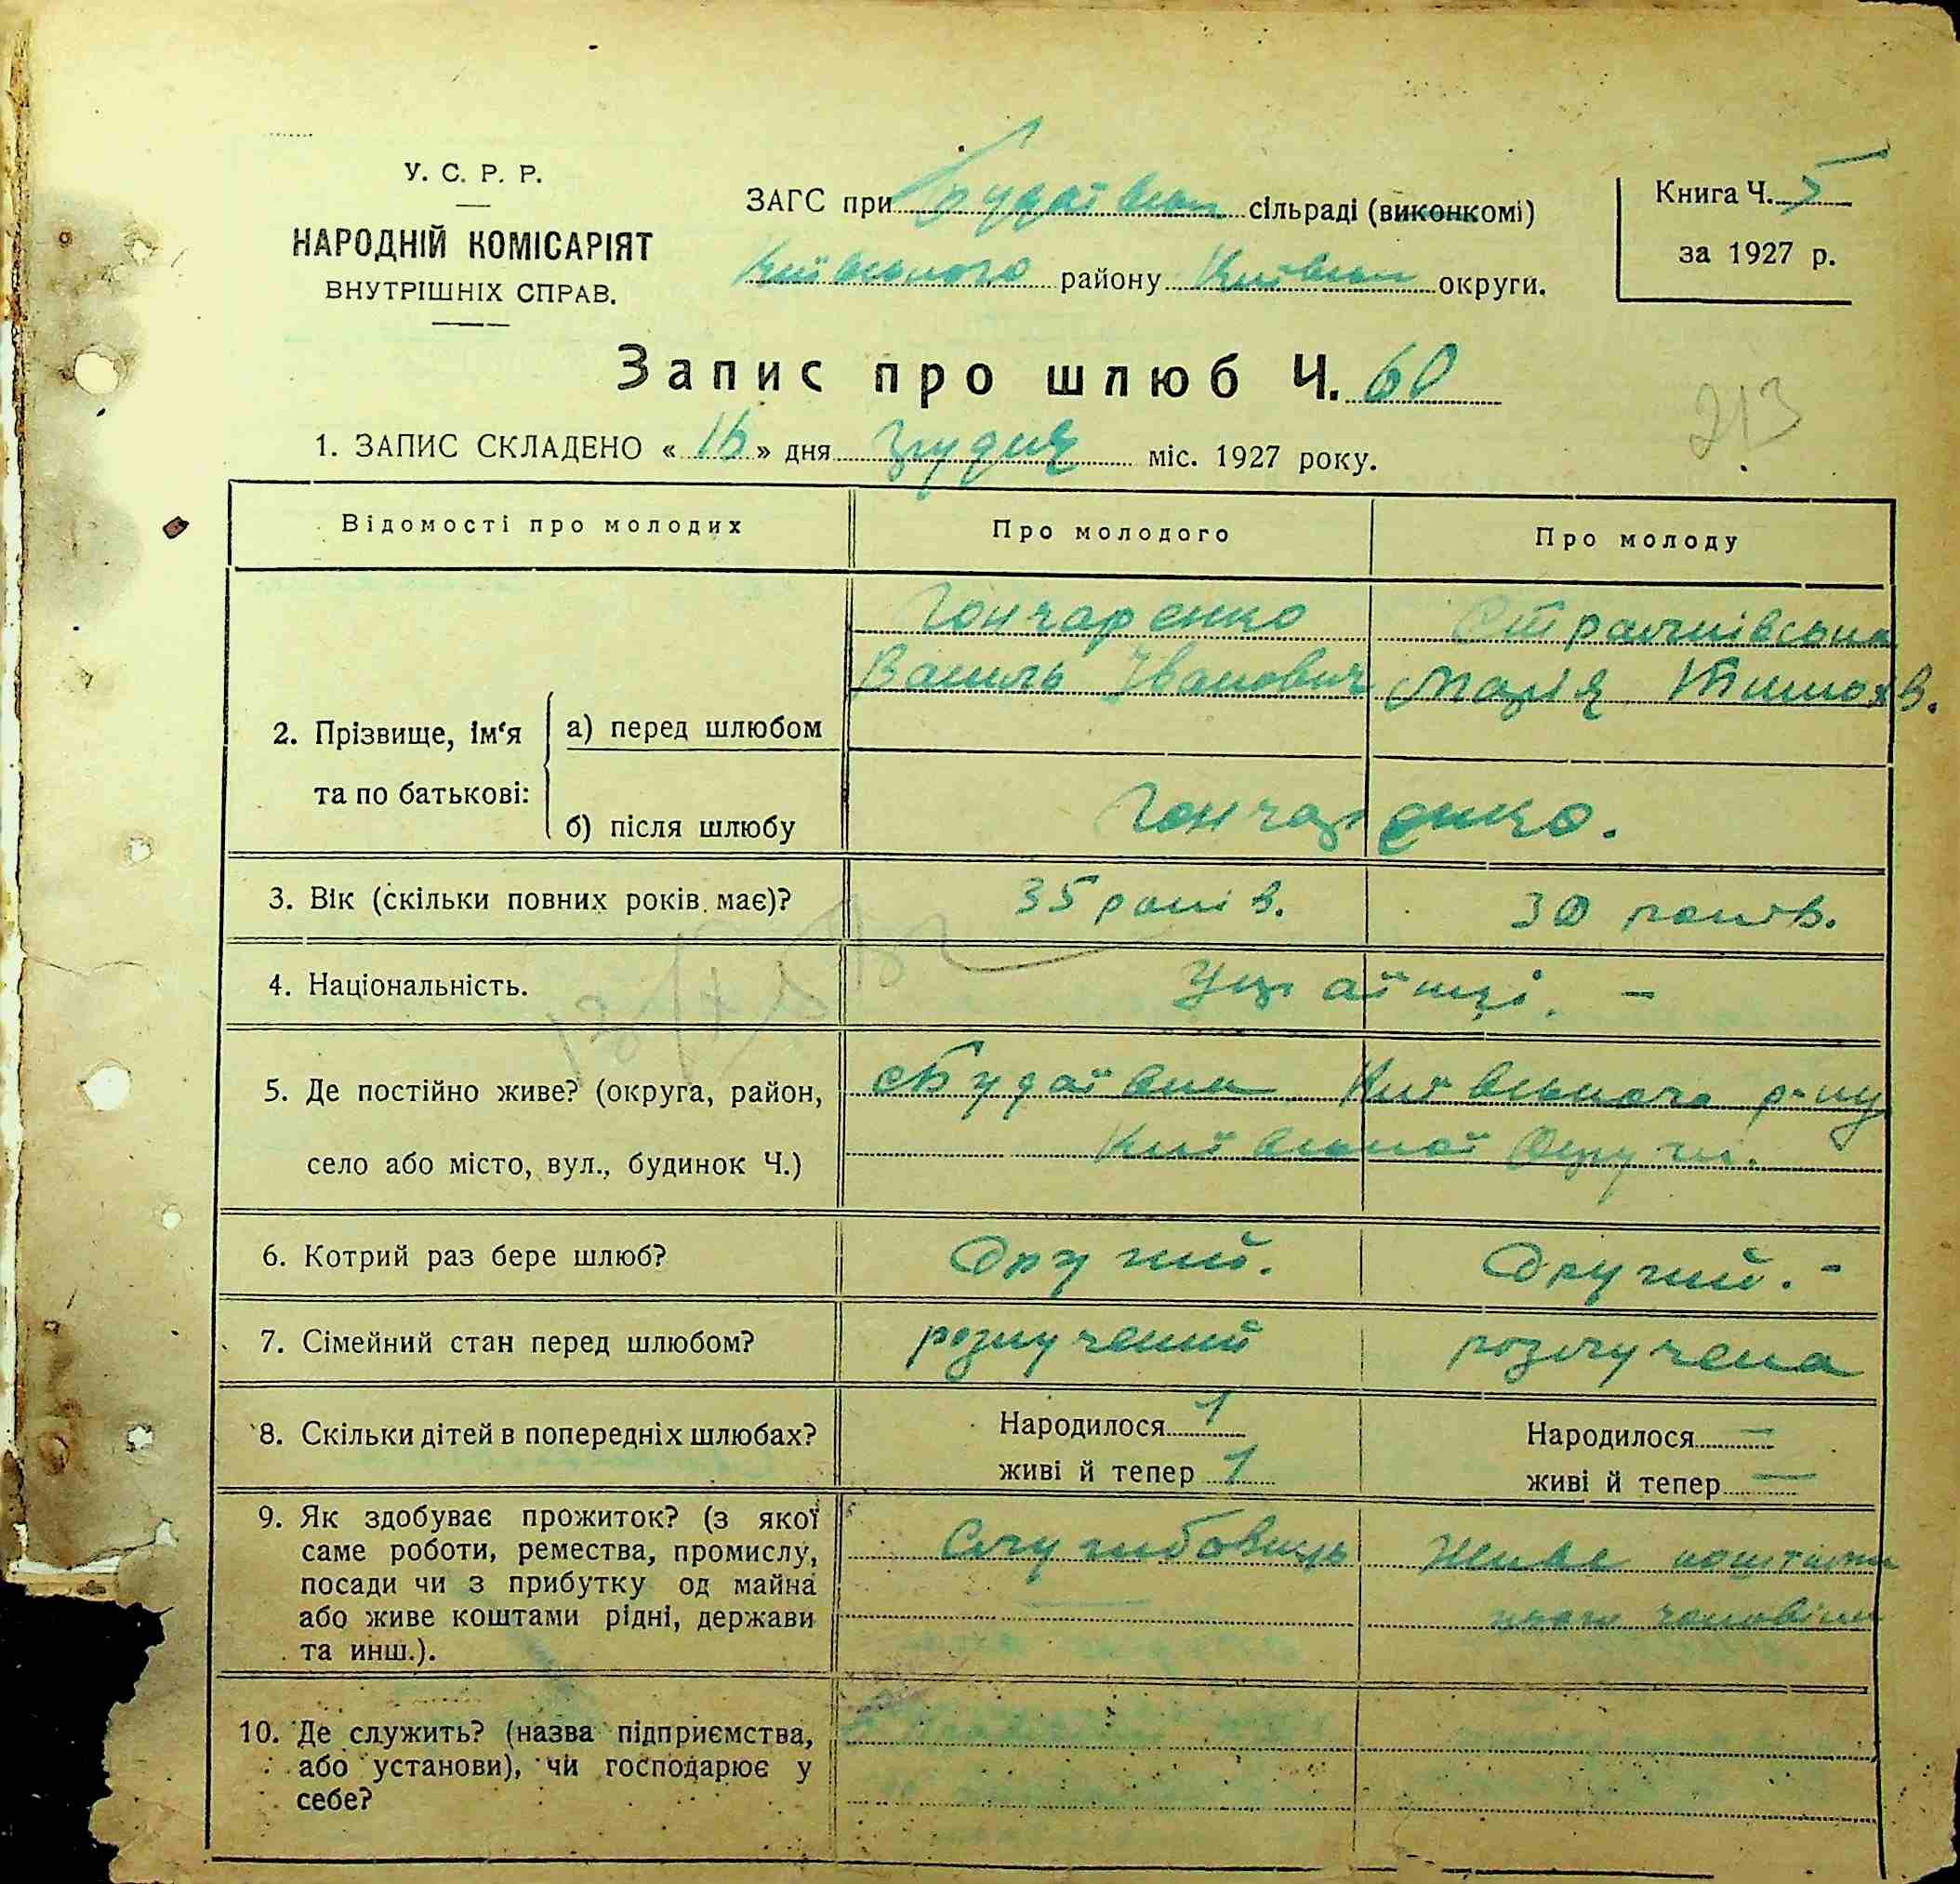 У. С. Р. Р.
НАРОДНІЙ КОМІСАРІЯТ
ВНУТРІШНІХ СПРАВ.
ЗАГС при Будаївській сільраді (виконкомі)
Київського району Київської округи.
Книга Ч. 5
за 1927 р.
Запис про шлюб Ч. 60
213
1. ЗАПИС СКЛАДЕНО « 16 » дня грудня міс. 1927 року.
Відомості про молодих
Про молодого
Про молоду
2. Прізвище, ім‘я та по батькові:
а) перед шлюбом
Гончаренко
Василь Іванович
Марія Тимох в.
б) після шлюбу
Гончаренко.
3. Вік (скільки повних років має)?
35 років.
30 років.
4. Національність.
Українці. –
5. Де постійно живе? (округа, район,
село або місто, вул., будинок Ч.)
с Будаївка Київського р-ну
Київської Округи.
6. Котрий раз бере шлюб?
Другий.
Другий. -
7. Сімейний стан перед шлюбом?
розлучений
розлучена
8. Скільки дітей в попередніх шлюбах?
Народилося 1
живі й тепер 1
Народилося —
живі й тепер —
9. Як здобуває прожиток? (з якої
саме роботи, ремества, промислу,
посади чи з прибутку од майна
або живе коштами рідні, держави
та инш.).
Службовець
Живе коштами
чоловіка
10. Де служить? (назва підприємства,
або установи), чи господарює у
себе?